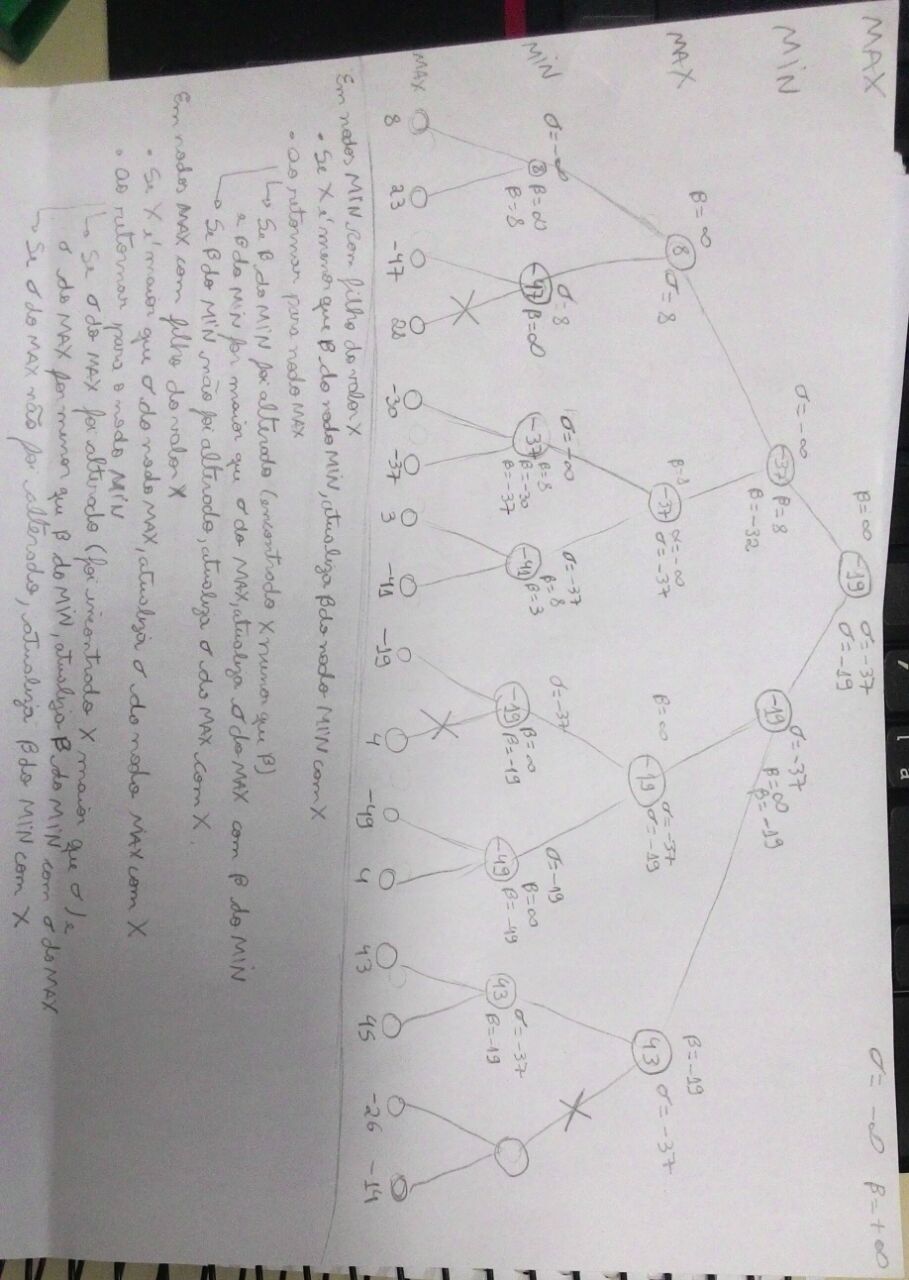 MAX β=∞ -19 σ=-37 σ=-∞ β=+∞
σ=-19
MIN σ=-∞ -37 β=8 -19 σ=-37
β=∞
β=-32 β=-19
MAX β=∞ 8 σ=8 -37 α=-∞ β=∞ -19 σ=-37 β=-19
σ=-37 σ=-19 43 σ=-37
MIN σ=-∞ 8 β=∞ σ=8 -47 β=∞ σ=-∞ -37 β=8 σ=-37 -41 β=8 σ=-37 -19 β=∞ σ=-19 -49 β=∞ 43 σ=-37
β=8 β=-30 β=3 β=-19 β=-49 β=-19
β=-37
MAX
8 23 -47 28 -30 -37 3 -41 -19 4 -49 4 43 45 -26 -14
Em nodos MIN com filho do valor X
• Se X é menor que β do nodo MIN, atualiza β do nodo MIN com X
• ao retornar para nodo MAX
↳ Se β do MIN foi alterado (encontrado X menor que β)
e β do MIN for maior que σ do MAX, atualiza σ do MAX com β do MIN
↳ Se β do MIN não foi alterado, atualiza σ do MAX com X.
Em nodos MAX com filho do valor X
• Se X é maior que σ do nodo MAX, atualiza σ do nodo MAX com X
• ao retornar para o nodo MIN
↳ Se σ do MAX foi alterado (foi encontrado X maior que σ) e
σ do MAX for menor que β do MIN, atualiza β do MIN com σ do MAX
↳ Se σ do MAX não foi alterado, atualiza β do MIN com X